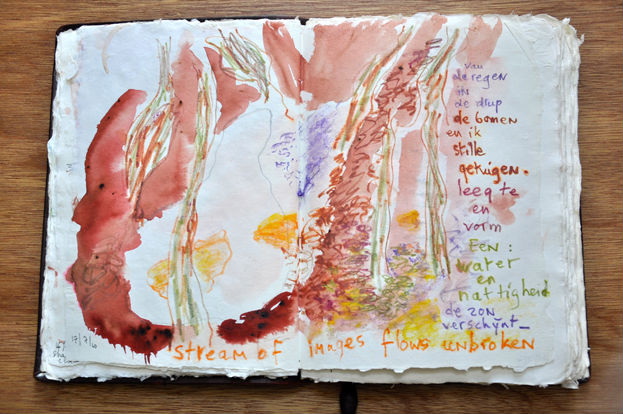 van
de regen
in
de drup
de bomen
en ik
stille
getuigen.
leegte
en
vorm
Een:
water
en
nattigheid
de zon
verschijnt_
17/7/10
stream of images flows unbroken